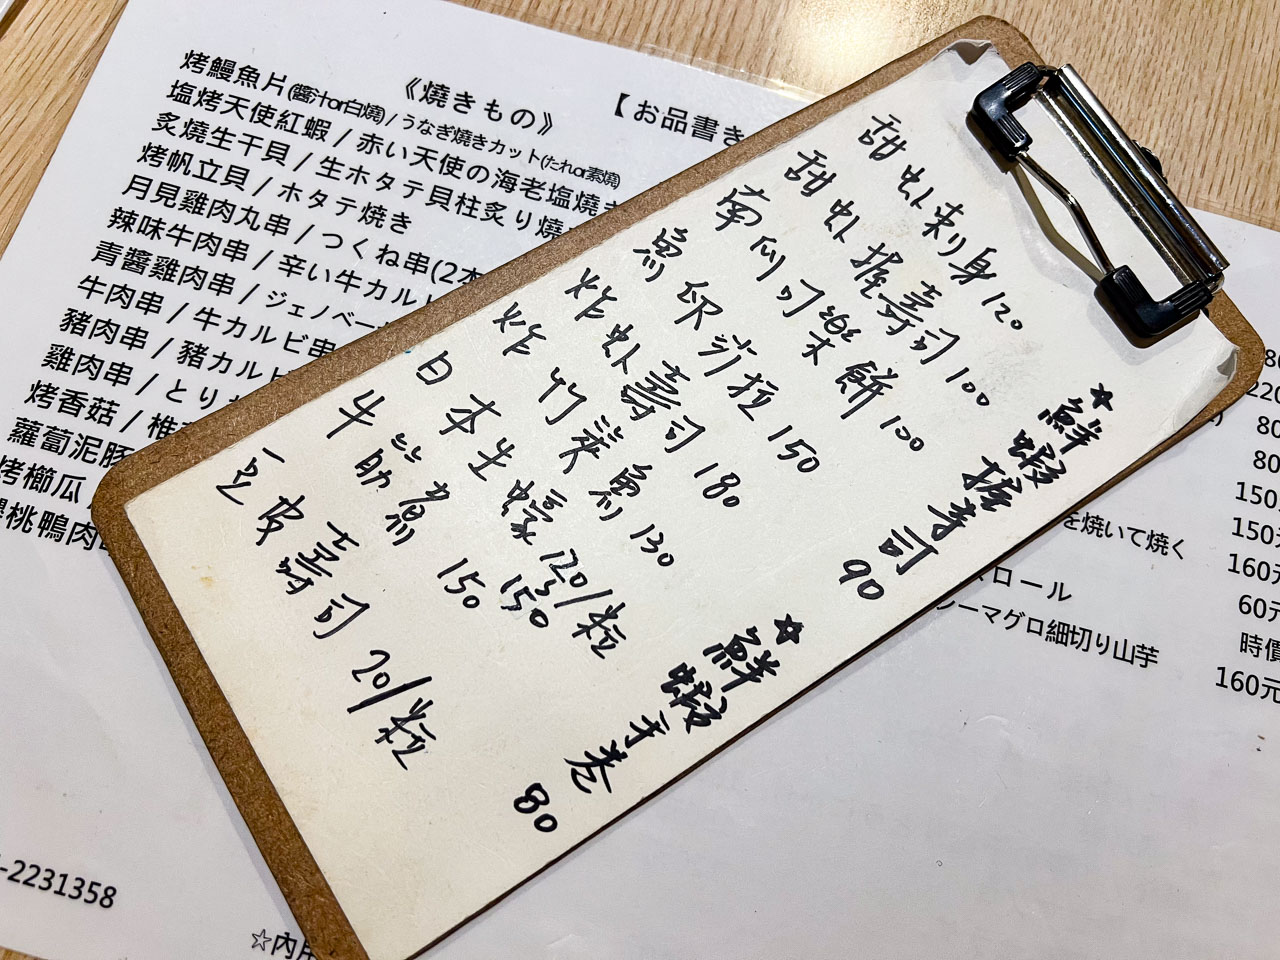 甜虾刺身 120
甜虾握壽司 100
南瓜可樂餅 100
魚卵沙拉 150
炸虾壽司 180
炸竹筴魚 130
日本生蠔 120/粒
牛筋煮 150 150
豆皮壽司 20/粒
☆鮮蝦握寿司 90
☆鮮蝦手卷 80
《燒きもの》
【お品書き
烤鰻魚片(醬汁or白燒) / うなぎ燒きカット(たれor素燒)
塩烤天使紅蝦 / 赤い天使の海老塩燒き
炙燒生干貝 / 生ホタテ貝柱炙り燒
烤帆立貝 / ホタテ焼き
月見雞肉丸串 / つくね串(2本
辣味牛肉串 / 辛い牛カルビ
青醬雞肉串 / ジェノベー
牛肉串 / 牛カルビ串
豬肉串 / 豬カルビ
雞肉串 / とり
烤香菇 / 椎
蘿蔔泥豚
烤櫛瓜
櫻桃鴨肉
80
80
150
150元
を焼いて焼く 160元
ロール 60元
シーマグロ細切り山芋 時價
160元
-2231358
☆內用